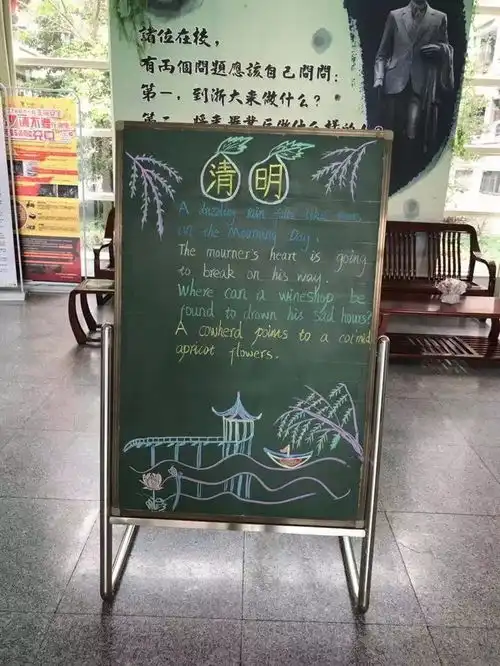 諸位在校，
有兩個問題應該自己問問：
第一，到浙大來做什么？
清明
A drizzling rain falls like tears
on the Mourning Day.
The mourner's heart is going
to break on his way.
Where can a wineshop be
found to drown his sad hours?
A cowherd points to a cot mid
apricot flowers.